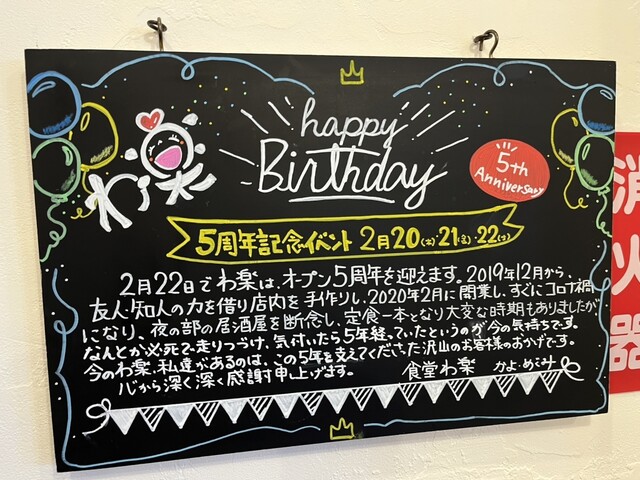 happy
Birthday
5th
Anniversary
わ楽
5周年記念イベント 2月20(木)21(金)22(土)
2月22日でわ楽は、オープン5周年を迎えます。2019年12月から、
友人・知人の力を借り店内を手作りし、2020年2月に開業し、すぐにコロナ禍
になり、夜の部の居酒屋を断念し、定食一本となり大変な時期もありましたが
なんとか必死で走りつづけ、気付いたら5年経っていたというのが今の気持ちです。
今のわ楽、私達があるのは、この5年を支えてくださった沢山のお客様のおかげです。
心から深く深く感謝申し上げます。
食堂わ楽 かよ・めぐみ
消火器